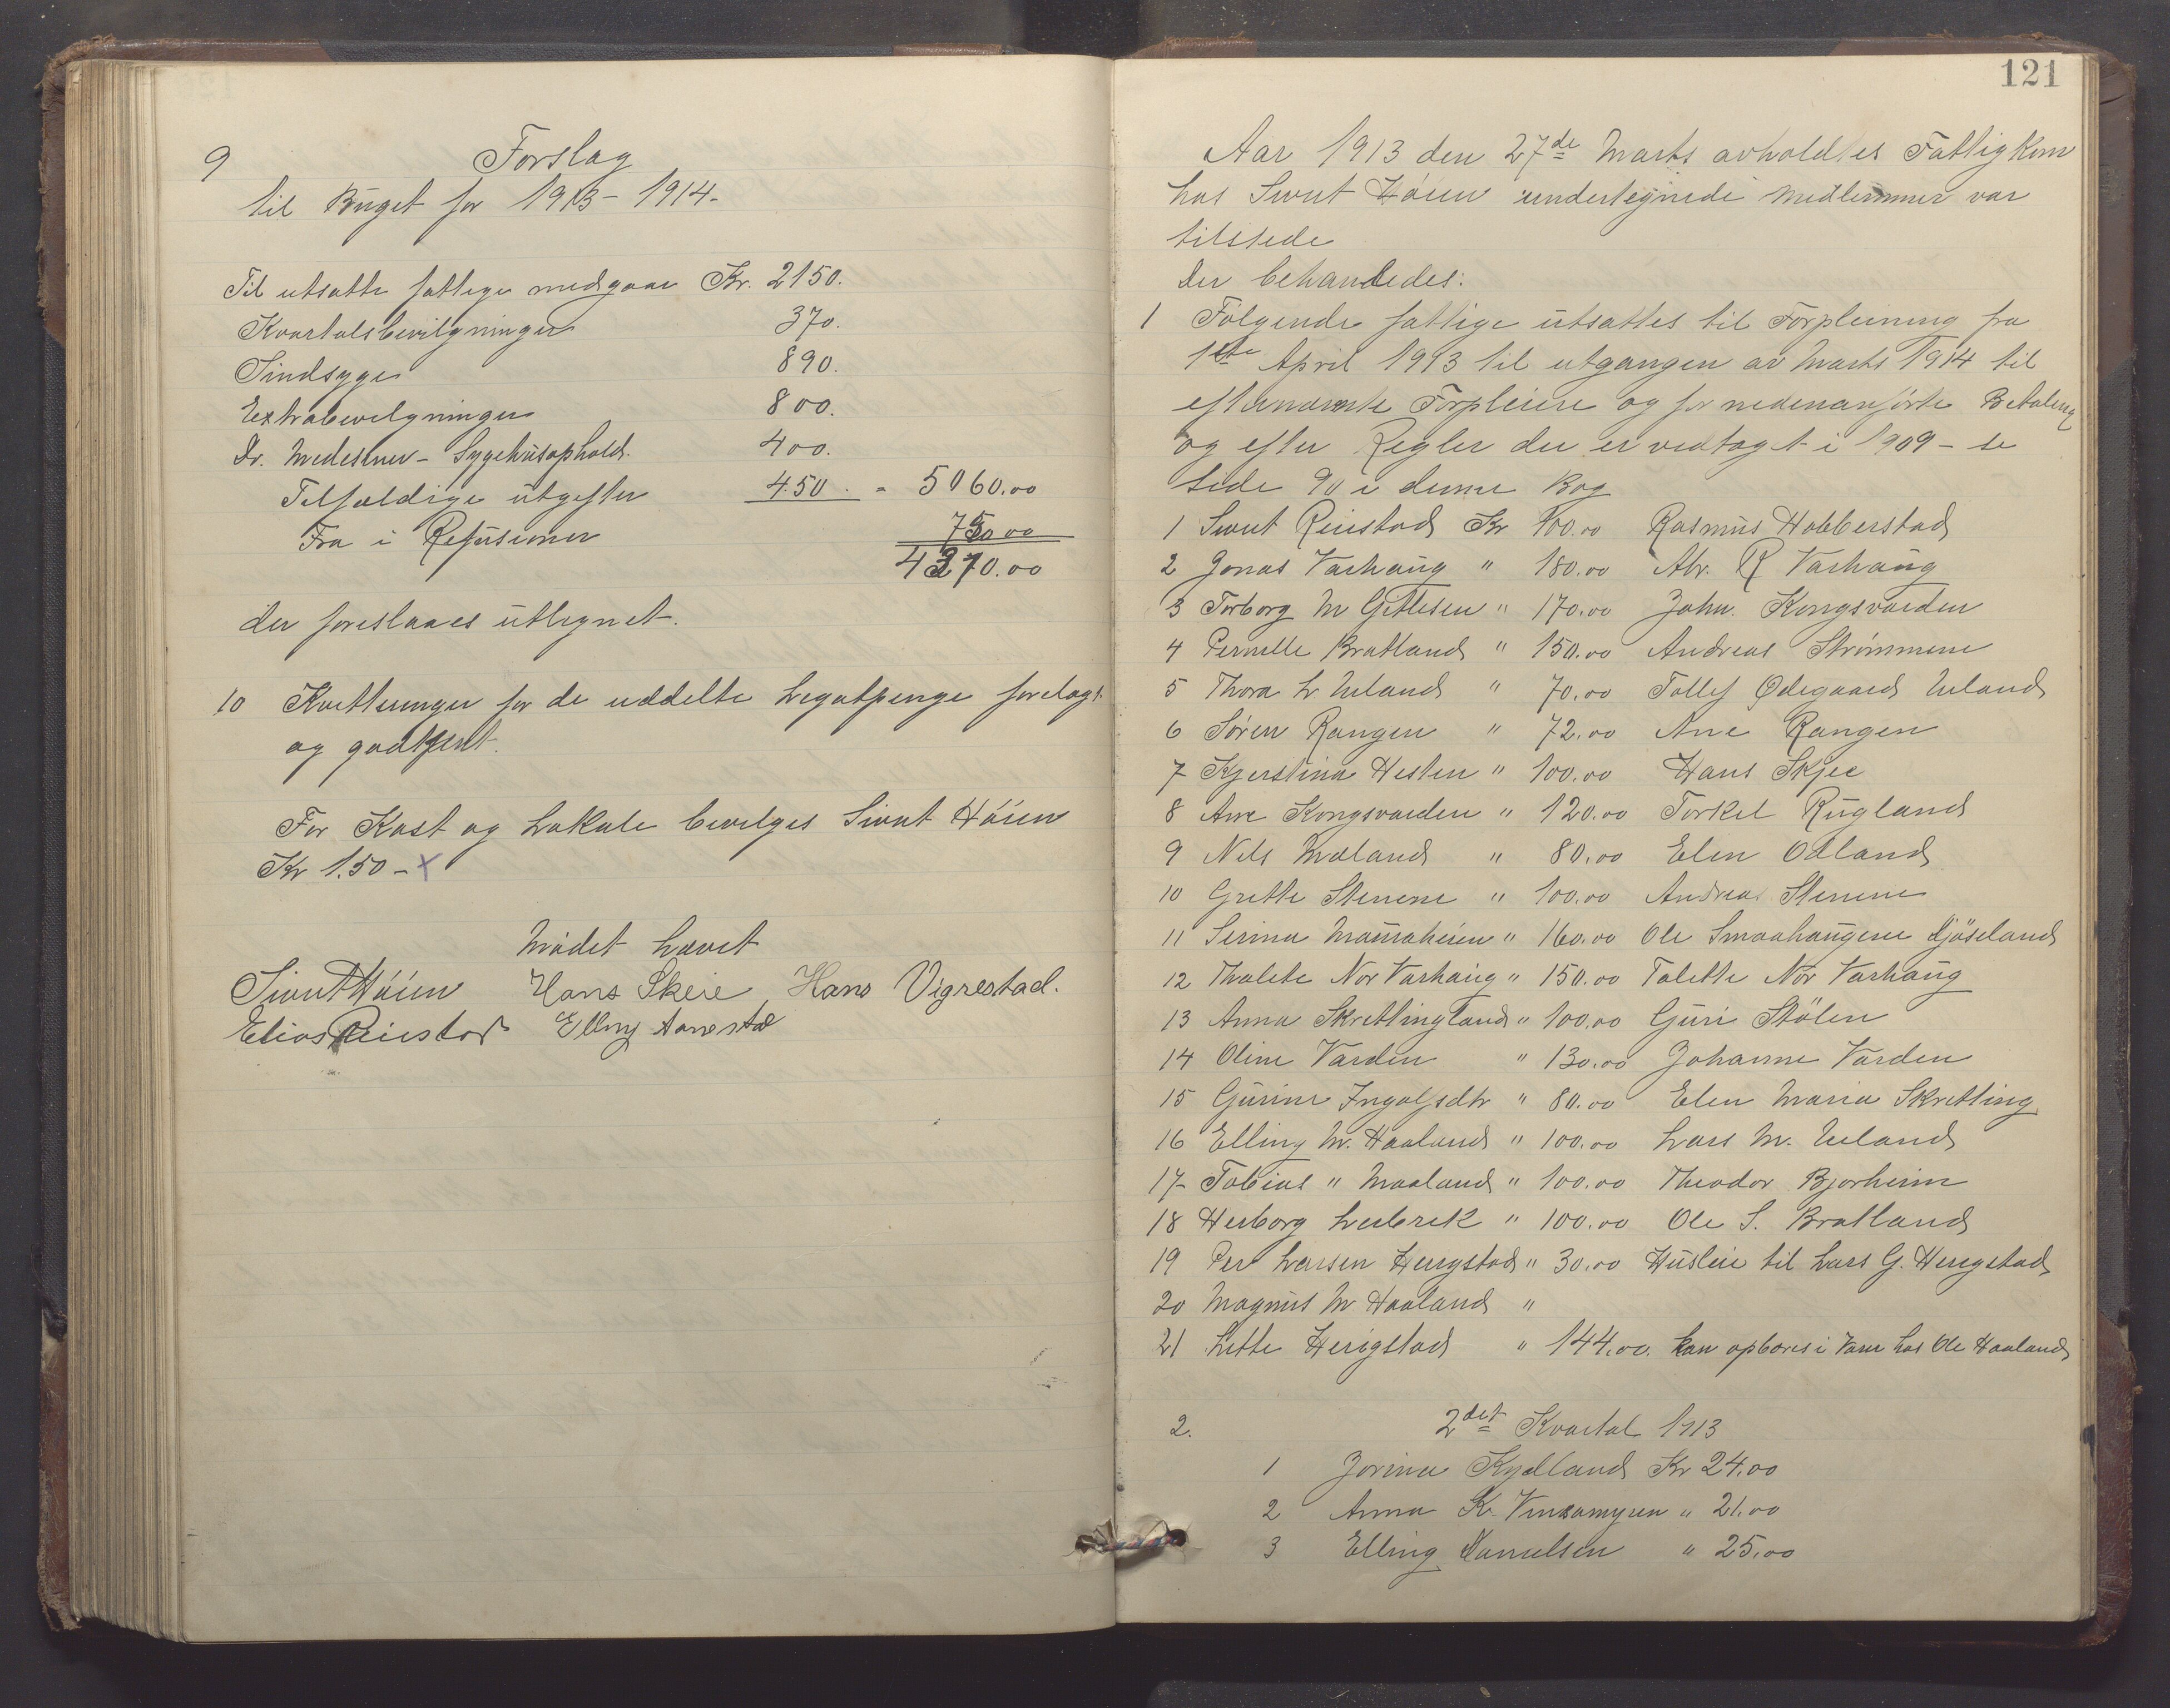 9 Forslag
til Buget for 1913-1914.
Til utsatte fattige medgaar Kr. 2150.
Kvartalsbevilgninger 370.
Sindsyge 890.
Extrabevilgninger 800.
Dr. Medesiner - Sygehusophold. 400.
Tilfældige utgifter 450. = 5060.00
Fra i Refusioner 750.00
4310.00
der foreslaaes utlignet.
10 Kvitteringer for de uddelte Legatpenge forelagt
og godkjent.
For Kost og Lokale bevilges Sivut Høien
Kr 1.50 - x
Mødet hævet
Sivut Høien Hans Skeie, Hans Vigrestad.
Elias Reiestad Elling Aanestad
121
Aar 1913 den 27de Marts avholdtes Fattigkom
hos Sivut Høien undertegnede Medlemmer var
tilstede
Der behandledes:
1 Følgende fattige utsattes til Forpleining fra
1ste April 1913 til utgangen av Marts 1914 til
efternævnte Forpleiere og for nedenanførte Betaling
og efter Regler der er vedtaget i 1909 - se
side 90 i denne Bog
1 Sivut Reiestad Kr 100.00 Rasmus Hobberstad
2 Jonas Varhaug " 180.00 Abr. R Varhaug
3 Torborg M Gitlesen " 170.00 John. Kongsvarden
4 Pernille Bratland " 150.00 Andreas Strømmene
5 Thora L Ueland " 70.00 Tollef Ødegaard Ueland
6 Søren Rangen " 72.00 Ane Rangen
7 Kjerstina Hesten " 100.00 Hans Skjee
8 Ane Kongsvarden " 120.00 Torkel Rugland
9 Nils Mæland " 80.00 Elen Odland
10 Grethe Stenene " 100.00 Andreas Stenene
11 Serina Mauraheien " 160.00 Ole Smaahaugene Gjøseland
12 Thalete Nor Varhaug " 150.00 Talette Nor Varhaug
13 Anna Skretting land " 100.00 Guri Stølen
14 Oline Varden " 130.00 Johanne Varden
15 Gurine Ingolfsdtr " 80.00 Elen Maria Skretting
16 Elling M. Haaland " 100.00 Lars M. Ueland
17 Tobias " Maaland " 100.00 Theodor Bjorheim
18 Herborg Leebrek " 100.00 Ole S. Bratland
19 Per Larsen Herigstad " 30.00 Husleie til Lars G. Herigstad
20 Magnus M Haaland "
21 Lette Herigstad " 144.00. kan opbæres i Varer hos Ole Haaland
2. 2det Kvartal 1913
1 Jorina Kydland Kr 24.00
2 Anna K. " 21.00
3 Elling Danielsen " 25.00